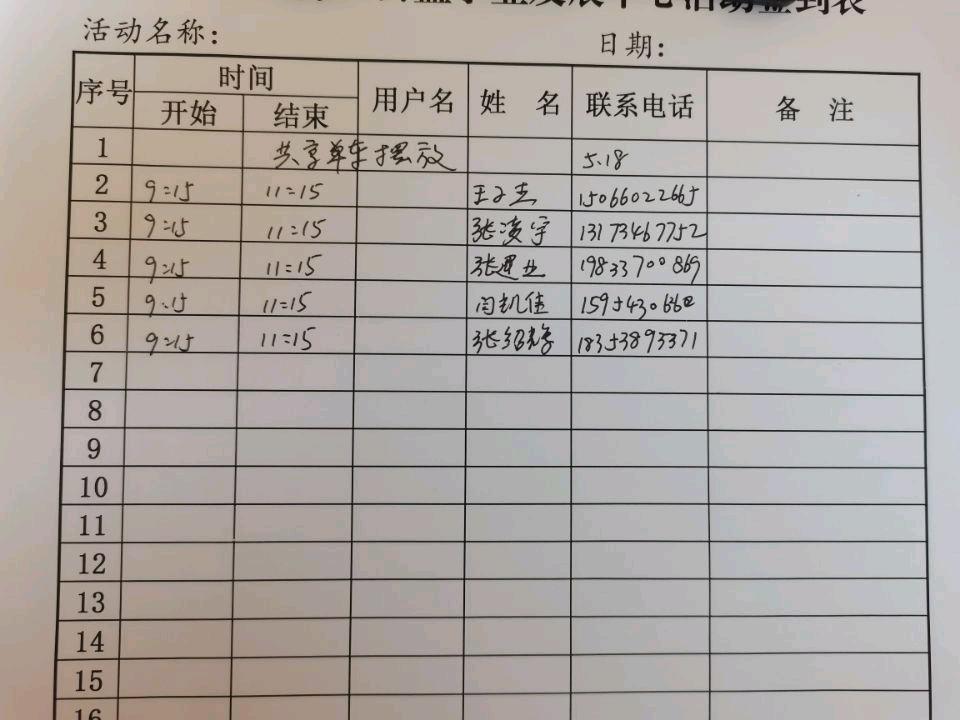 业发展中心活动签到表
活动名称: 日期:
序号 时间 用户名 姓 名 联系电话 备 注
开始 结束
1 共享单车摆放 5.18
2 9:15 11:15 王子杰 15066022665
3 9:15 11:15 张凌宇 13173467752
4 9:15 11:15 张建业 19833700869
5 9:15 11:15 闫凯佳
6 9:15 11:15 18353893371
7
8
9
10
11
12
13
14
15
16